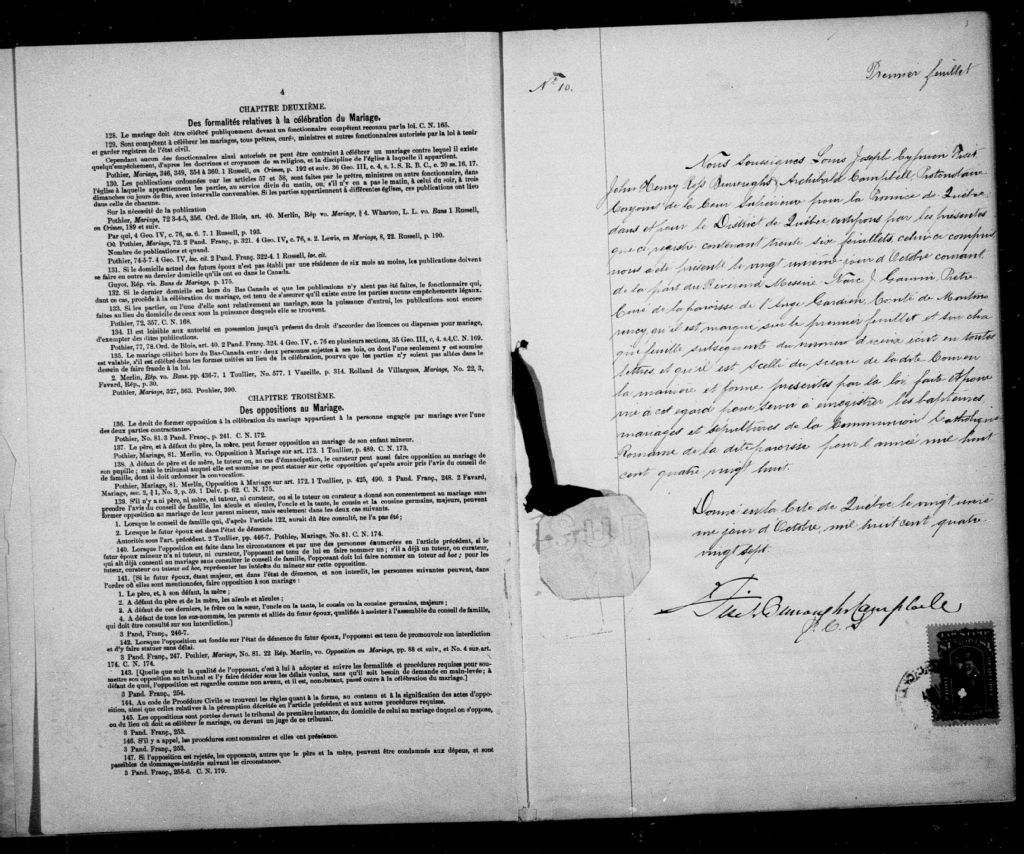 4
CHAPITRE DEUXIÈME.
Des formalités relatives à la célébration du Mariage.
128. Le mariage doit être célébré publiquement devant un fonctionnaire compétent reconnu par la loi. C. N. 165.
129. Sont compétents à célébrer les mariages, tous prêtres, curés, ministres et autres fonctionnaires autorisés par la loi à tenir
et garder registres de l'état civil.
Cependant aucun des fonctionnaires ainsi autorisés ne peut être contraint à célébrer un mariage contre lequel il existe
quelqu'empêchement, d'après les doctrines et croyances de sa religion, et la discipline de l'église à laquelle il appartient.
Pothier, Mariage, 346, 349, 354 à 360. 1 Russell, on Crimes, p. 192 et suiv. 36 Geo. III, c. 4, s. 1. S. R. B. C., c. 20 ss. 16, 17.
130. Les publications ordonnées par les articles 57 et 58, sont faites par le prêtre, ministre ou autre fonctionnaire, dans
l'église à laquelle appartiennent les parties, au service divin du matin, ou, s'il n'y en a pas le matin, à celui du soir, à trois
dimanches ou jours de fête, avec intervalle convenables. Si les parties appartiennent à différentes églises, ces publications ont lieu
dans celle de chacune.
Sur la nécessité de la publication
Pothier, Mariage, 72 3-4-5, 356. Ord. de Blois, art. 40. Merlin, Rép vo. Mariage, § 4. Wharton, L. L. vo. Bans 1 Russell,
on Crimes, 189 et suiv.
Par qui, 4 Geo. IV, c. 76, ss. 6. 7. 1 Russell, p. 193.
Où Pothier, Mariage, 72. 2 Pand. Franç., p. 321. 4 Geo. IV, c. 76, s. 2. Lewis, on Mariage, 8, 22. Russell, p. 190.
Nombre de publications et quand.
Pothier, 74-5-7. 4 Geo. IV, loc. cit. 2 Pand. Franç. 322-4. 1 Russell, loc. cit.
131. Si le domicile actuel des futurs époux n'est pas établi par une résidence de six mois au moins, les publications doivent
se faire en outre au dernier domicile qu'ils ont eu dans le Canada.
Guyot, Rép. vis. Bans de Mariage, p. 175.
132. Si le dernier domicile est hors du Bas Canada et que les publications n'y aient pas été faites, le fonctionnaire qui,
dans ce cas, procède à la célébration du mariage, est tenu de s'assurer qu'il existe entre les parties aucuns empêchements légaux.
133. Si les parties, ou l'une d'elle sont relativement au mariage, sous la puissance d'autrui, les publications sont encore
faites au lieu du domicile de ceux sous la puissance desquels elle se trouvent.
Pothier, 72, 357. C. N. 168.
134. Il est loisible aux autorité en possession jusqu'à présent du droit d'accorder des licences ou dispenses pour mariage,
d'exempter des dites publications.
Pothier, 77, 78. Ord. de Blois, art. 40. 2 Pand. Franç. 324. 4 Geo. IV, c. 76 en plusieurs sections, 35 Geo. III, c, 4. s.4,C. N. 169.
135. Le mariage célébré hors du Bas-Canada entre deux personnes sujettes à ses lois, ou dont l'une seulement y est soumise
est valable, s'il est célébré dans les formes usitées au lieu de la célébration, pourvu que les parties n'y soient pas allées dans le
dessein de faire fraude à la loi.
2. Merlin, Rép. vo. Bans. pp. 436-7. 1 Toullier, No. 577. 1 Vazeille. p. 314. Rolland de Villargues, Mariage, No. 22, 3,
Favard, Rép., p. 30.
Pothier, Mariage, 327, 363. Pouhier, 390.
CHAPITRE TROISIÈME.
Des oppositions au Mariage.
136. Le droit de former opposition à la célébration du mariage appartient à la personne engagée par mariage avec l'une
des deux parties contractantes.
Pothier, No. 81. 3 Pand. Franç., p. 241. C. N. 172.
137. Le père, et à défaut du père, la mère, peut former opposition au mariage de son enfant mineur.
Pothier, Mariage, 81. Merlin, vo. Opposition à Mariage sur art. 173. 1 Toullier, p. 489. C. N. 173.
138. A défaut de père et de mère, le tuteur ou, au cas d'émancipation, le curateur peut aussi faire opposition au mariage de
son pupille ; mais le tribunal auquel elle est soumise ne peut statuer sur cette opposition qu'après avoir pris l'avis du conseil de
famille, dont il doit ordonner la convocation.
Pothier, Mariage, 81. Merlin, Opposition à Mariage sur art. 172. 1 Toullier, p. 425, 490. 3 Pand. Franç., 248. 2 Favard,
Mariage, sec. 2, § 1, No. 3, p. 59. 1 Delv. p. 62. C. N. 175.
139. S'il n'y a ni père, ni mère, ni tuteur, ni curateur, ou si le tuteur ou curateur a donné son consentement au mariage sans
prendre l'avis du conseil de famille, les aïeuls et aïeules, l'oncle et la tante, le cousin et la cousine germains, majeurs, peuvent
former opposition au mariage de leur parent mineur, mais seulement dans les deux cas suivants.
1. Lorsque le conseil de famille qui, d'après l'article 122, aurait dû être consulté, ne l'a pas été ;
2. Lorsque le futur époux est dans l'état de démence.
Autorités sous l'art. précédent. 2 Toullier, pp. 446-7. Pothier, Mariage, No. 81. C. N. 174.
140. Lorsque l'opposition est faite dans les circonstances et par une des personnes énumérées en l'article précédent, si le
futur époux mineur n'a ni tuteur, ni curateur, l'opposant est tenu de lui en faire nommer un ; s'il a déjà un tuteur, ou curateur,
qui ait déjà consenti au mariage sans consulter le conseil de famille, l'opposant doit lui faire nommer un tuteur ad hoc ; pour les
tuteur, curateur ou tuteur ad hoc, représenter les intérêts du mineur sur cette opposition.
141. [Si le futur époux, étant majeur, est dans l'état de démence, et non interdit, les personnes suivantes peuvent, dans
l'ordre où elles sont mentionnées, faire opposition à son mariage :
1. Le père, et, à son défaut, la mère ;
2. A défaut du père et de la mère, les aïeuls et aïeules ;
3. A défaut de ces derniers, le frère ou la sœur, l'oncle ou la tante, le cousin ou la cousine germains, majeurs ;
4. A défaut de tous les sus-nommés, les parents et alliés du futur époux, qualifiés à assister à l'assemblée du conseil de famille,
qui doit être consulté sur son interdiction.]
3 Pand. Franç., 246-7.
142. Lorsque l'opposition est fondée sur l'état de démence du futur époux, l'opposant est tenu de promouvoir son interdiction
et d'y faire statuer sans délai.
3 Pand. Franç., 247. Pothier, Mariage, No. 81. 22 Rép. Merlin, vo. Opposition au Mariage, pp. 88 et suiv., et No. 4 sur art.
174. C. N. 174.
143. [Quelle que soit la qualité de l'opposant, c'est à lui à adopter et suivre les formalités et procédures requises pour sou-
mettre son opposition au tribunal et l'y faire décider sous les délais voulus, sans qu'il soit besoin de demande en main-levée ; à
défaut de quoi, l'opposition est regardée comme non avenu, et il est, nonobstant, passé outre à la célébration du mariage.]
3 Pand. Franç., 254.
144. Au code de Procédure Civile se trouvent les règles quant à la forme, au contenu et à la signification des actes d'oppo-
sition, ainsi que celles relatives à la péremption décrétée en l'article précédent et aux autres procédures requises.
145. Les oppositions sont portées devant le tribunal de première instance, du domicile de celui au mariage duquel on s'oppose,
ou du lieu où doit se célébrer le mariage, ou devant un juge de ce tribunal.
3 Pand. Franç., 253.
146. S'il y a appel, les procédures sont sommaires et elles ont préséance.
3 Pand. Franç., 253.
147. Si l'opposition est rejetée, les opposants, autres que le père et la mère, peuvent être condamnés aux dépens, et sont
passibles de dommages-intérêts suivant les circonstances.
3 Pand. Franç., 255-6. C. N. 179.
3
Premier feuillet
No 10.
Nous Soussignés Louis Joseph Cyprien Fiset
John Henry Ross Burroughs & Archibald Campbell, Protonotaire
Conjoint de la Cour Supérieure pour la Province de Québec
dans et pour le District de Québec certifions par les présentes
que ce registre contenant trente six feuillets, celui-ce compris
nous a été présenté le vingt unième jour d'Octobre courant
de la part du Révérend Messire Marc J. Gauvin Prêtre
Curé de la paroisse de l'Ange Gardien, Comté de Montmo
rency, qu'il est marqué sur le premier feuillet et sur cha
que feuillet subséquent du numéro d'icelui écrit en toutes
lettres et qu'il est scellé du sceau de la dite Cour en
la manière et forme prescrites par la loi faite et pour
vue à cet égard pour servir à enregistrer les baptêmes,
mariages et sépultures de la Communion Catholique
Romaine de la dite paroisse pour l'année mil huit
cent quatre vingt huit.
Donné en la Cité de Québec le vingt uniè
me jour d'Octobre, mil huit cent quatre
vingt sept.
Fiset Burroughs Campbell
P. C. S.